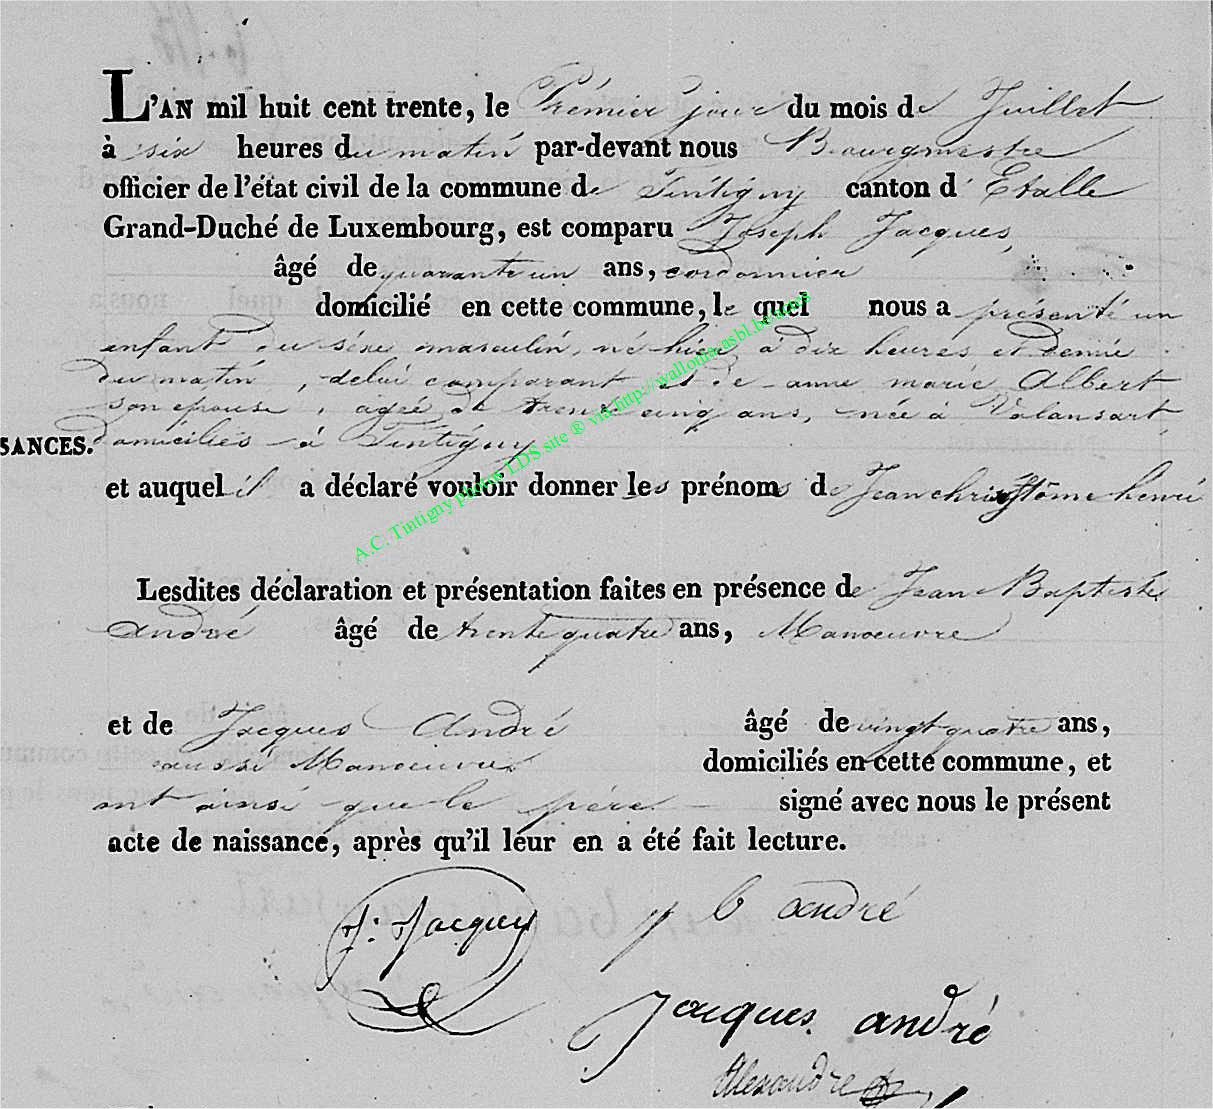 L'AN mil huit cent trente, le Prémier jour du mois de Juillet
à six heures du matin par-devant nous Bourgmestre
officier de l'état civil de la commune de Tintigny canton d'Etalle
Grand-Duché de Luxembourg, est comparu Joseph Jacques,
âgé de quarante un ans, cordonnier
domicilié en cette commune, le quel nous a présenté un
enfant du sexe masculin, né hier à dix heures et demie
du matin, de lui comparant et de anne marie Albert
son épouse, agée de trente cinq ans, née à Valansart
SANCES. domiciliés à Tintigny
et auquel il a déclaré vouloir donner les prénoms de Jean henri
Lesdites déclaration et présentation faites en présence de Jean Baptiste
André âgé de trente quatre ans, Manoeuvre
et de Jacques André âgé de vingt quatre ans,
aussi Manoeuvre domiciliés en cette commune, et
ont ainsi que le père signé avec nous le présent
acte de naissance, après qu'il leur en a été fait lecture.
J: Jacques
j b andré
Jacques andré
Alexandre
A.C. Tintigny photos LDS site ® via http://wallonia-asbl.be/actes